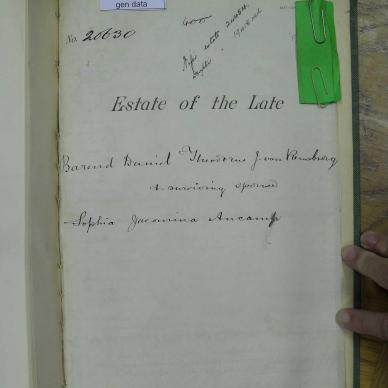 gen data
No. 20630
Estate of the Late
Barend Daniel Theodorus J. van Rensburg
& surviving spouse
Sophia Jacomina Aucamp